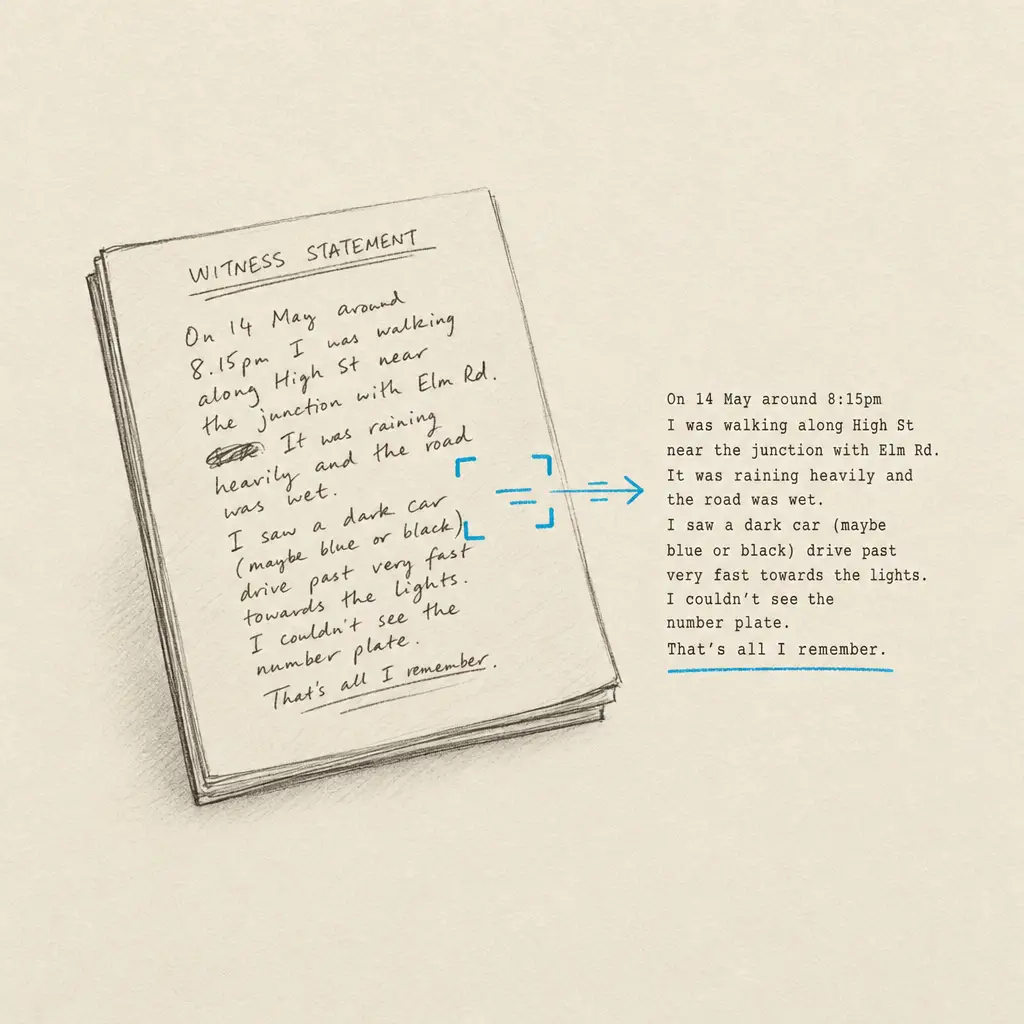 WITNESS STATEMENT
On 14 May around
8.15pm I was walking
along High St near
the junction with Elm Rd.
It was raining
heavily and the road
was wet.
I saw a dark car
(maybe blue or black)
drive past very fast
towards the lights.
I couldn't see the
number plate.
That's all I remember.
On 14 May around 8:15pm
I was walking along High St
near the junction with Elm Rd.
It was raining heavily and
the road was wet.
I saw a dark car (maybe
blue or black) drive past
very fast towards the lights.
I couldn't see the
number plate.
That's all I remember.